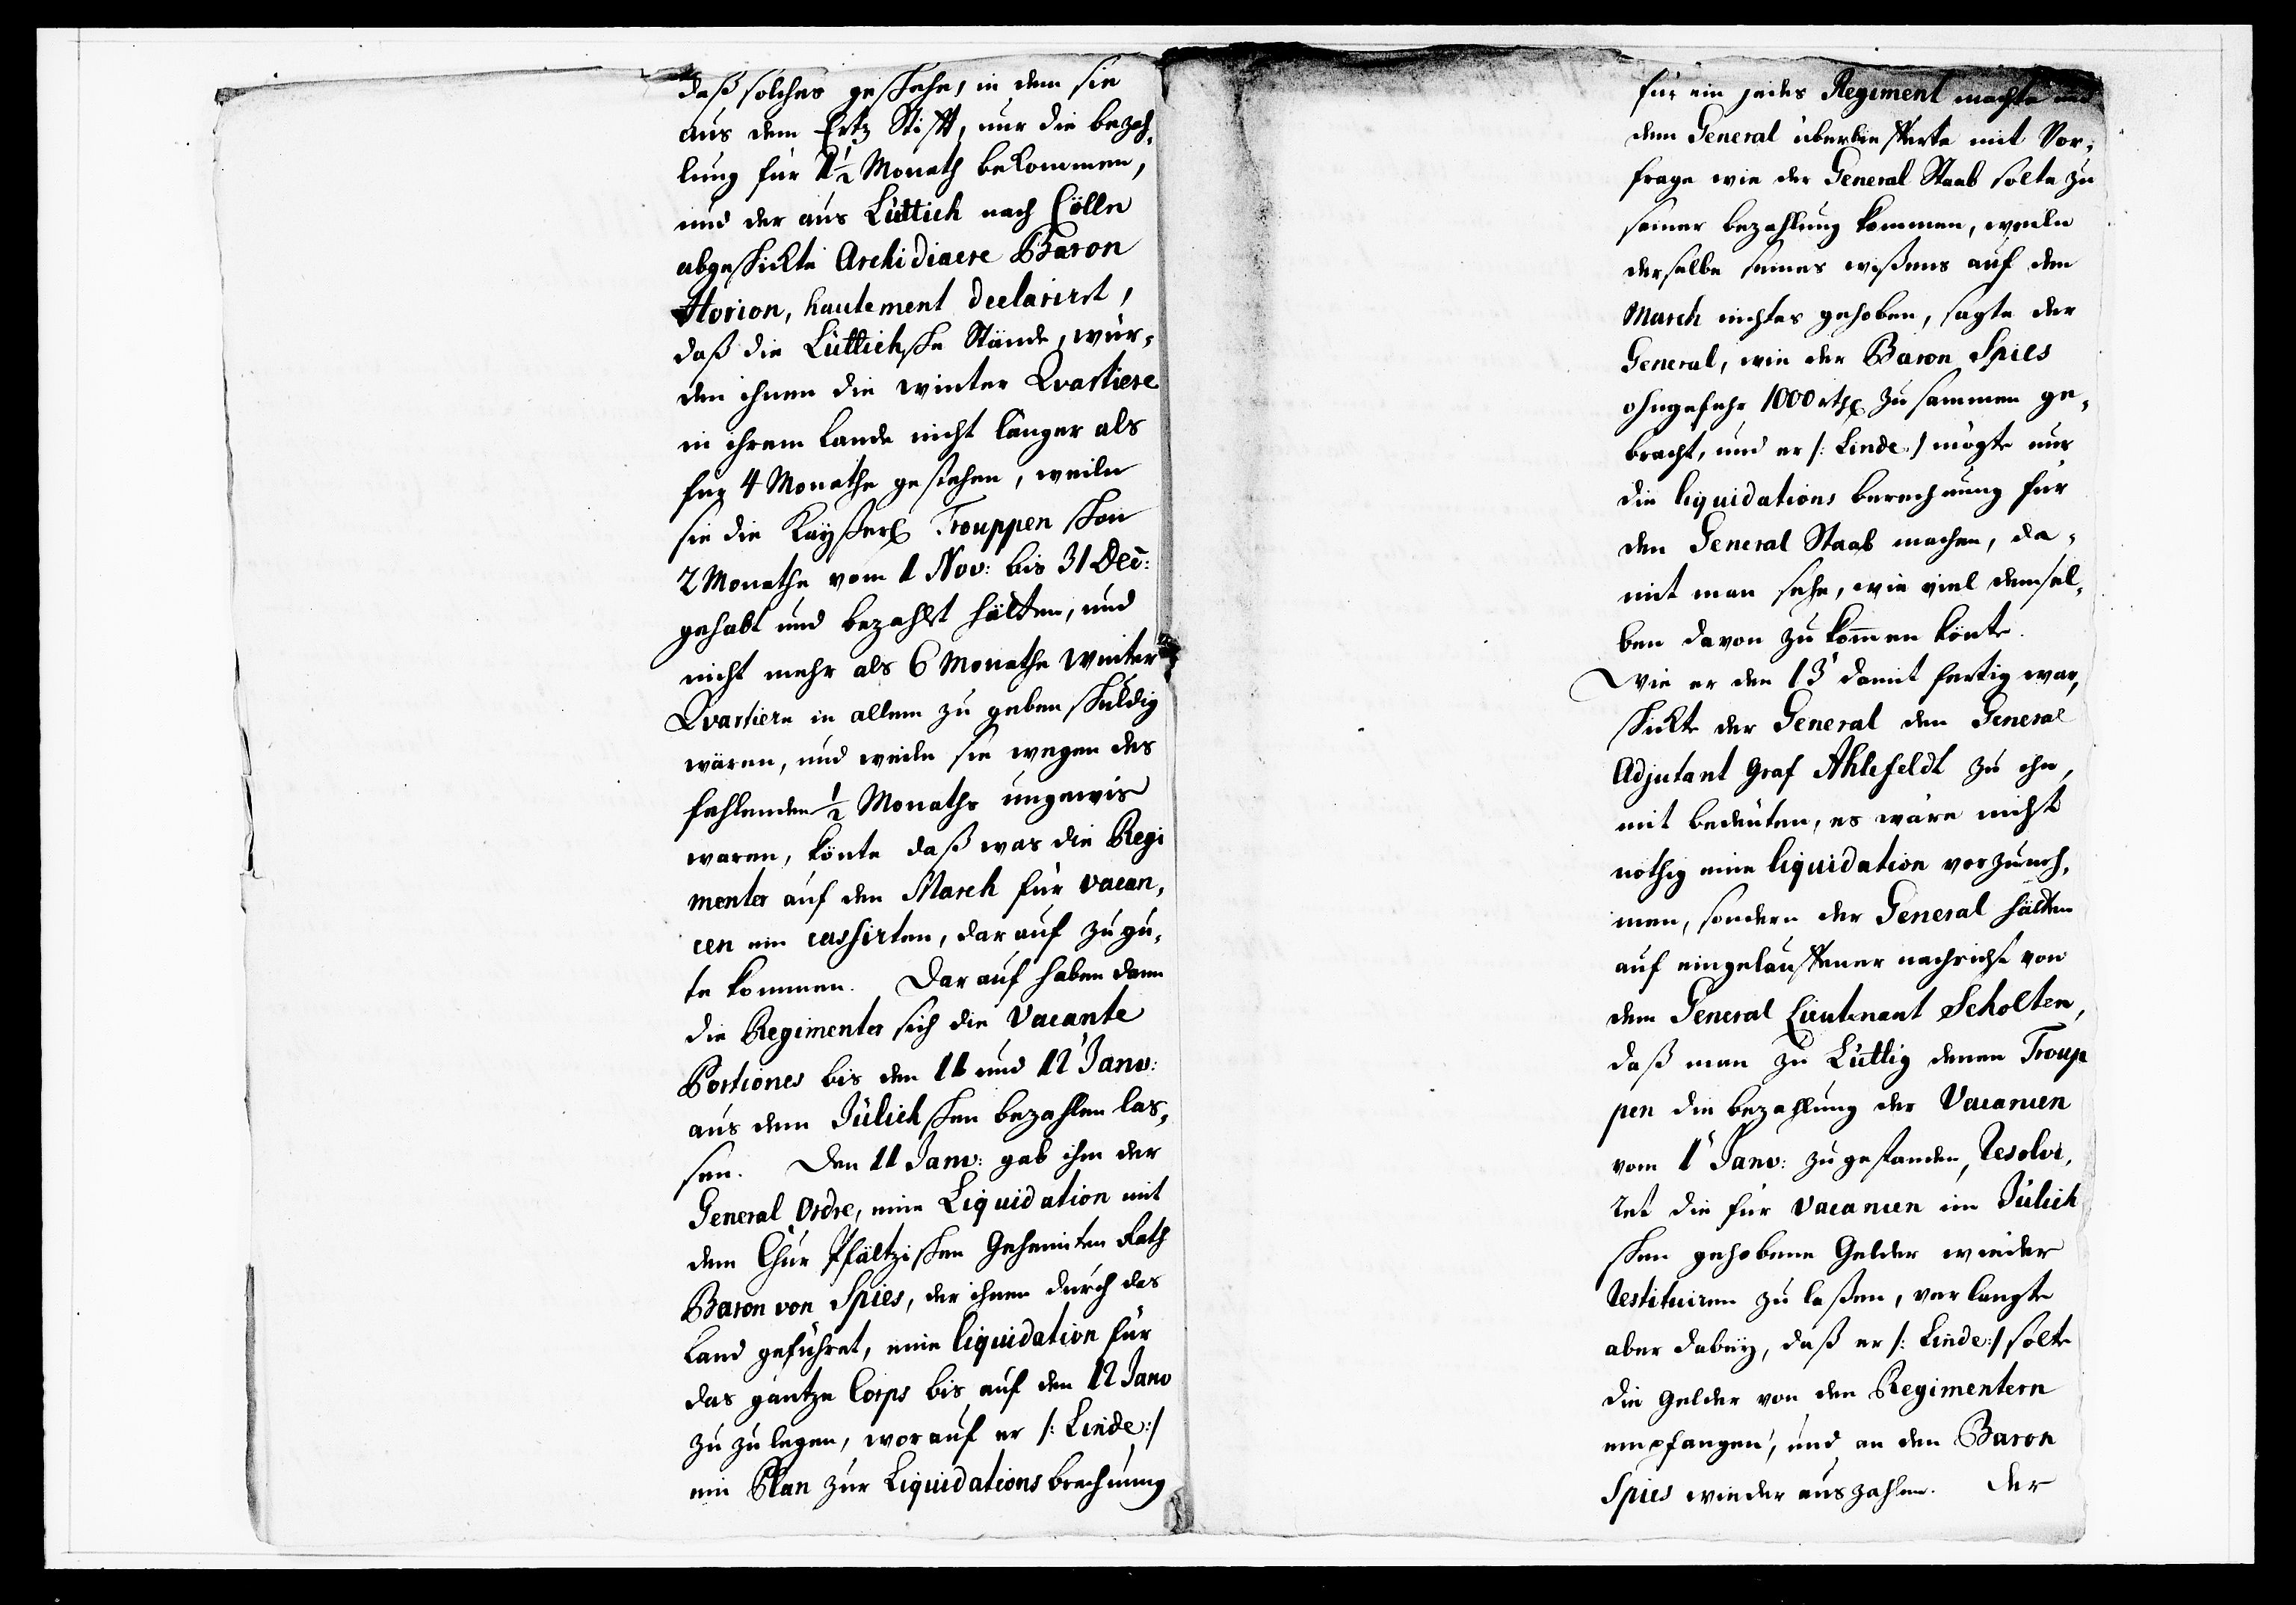 daß solches geschehe, in dem sie
aus dem Ertz Stifft, nur die bezah,
lung für 1½ Monath bekommen,
und der aus Lüttich nach Cölln
abgeschickte Archidiacre Baron
Horion, hautement declarirt,
daß die Lüttichsche Stände, wür,
den ihnen die winter Qvartiere
in ihrem Lande nicht länger als
für 4 Monathe gestehen, weiln
sie die Kayßerl Trouppen schon
2 Monathe vom 1 Nov: bis 31 Dec:
gehabt und bezahlt hätten, und
nicht mehr als 6 Monathe Winter
Qvartiere in allem zu geben schuldig
wären, und weiln sie wegen des
fehlenden ½ Monaths ungewis
waren, könte daß was die Regi
menter auf den March für vacan,
cen ein cassirten, darauf zu gu,
te kommen. Darauf haben dann
die Regimenter sich die Vacante
Portiones bis den 11 und 12' Janv:
aus dem Jülichschen bezahlen las,
sen. Den 11 Janv: gab ihm der
General Ordre, eine Liquidation mit
dem Chur Pfältzischen Geheimten Rath
Baron von Spies, der ihnen durch das
Land geführet, eine liquidation für
das gantze Corps bis auf den 12 Janv
zu zulegen, worauf er /: Linde :/
ein Plan zur Liquidations brechnung
für ein jedes Regiment machte und
dem General überliefferte mit Vor,
frage wie der General Staab solte zu
seiner bezahlung kommen, weiln
derselbe seines wißens auf dem
March nichtes gehoben, sagte der
General, wie der Baron Spies
ohngefehr 1000 rthl zusammen ge,
bracht, und er /: Linde :/ mögte nur
die liquidations berechnung für
den General Staab machen, da,
mit man sehe, wie viel demsel,
ben davon zu kom̄en könte.
Wie er den 13' damit fertig war,
schickte der General den General
Adjutant Graf Ahlefeldt zu ihn,
mit bedeuten, es wäre nicht
nöthig eine liquidation vorzuneh,
men, sondern der General hätten
auf eingelauffener nachricht von
dem General Lieutenant Scholten,
daß man zu Lüttig denen Troup
pen die bezahlung der Vacancen
vom 1' Janv: zugestanden, Resolvi,
ret die für Vacancen im Jülich
schen gehobene Gelder wieder
Restituiren zu laßen, verlangte
aber dabey, daß er /: Linde :/ solte
die Gelder von den Regimentern
empfangen, und an den Baron
Spies wieder auszahlen. Der